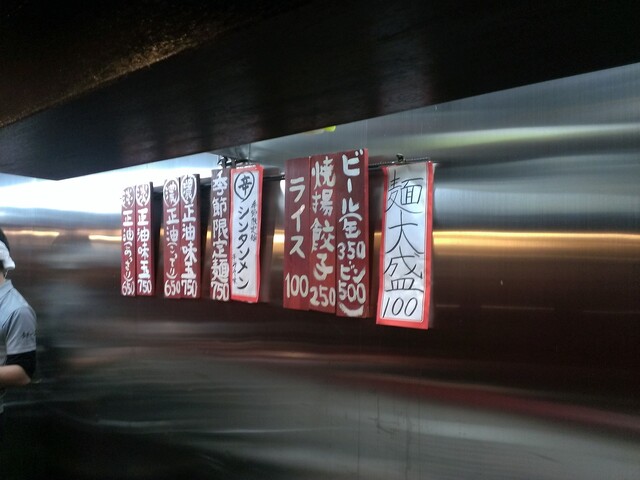 正油(こってり)
650
正油味玉
750
正油(こってり)
650
正油味玉
750
季節限定麺
750
辛
シンタンメン
ライス
100
焼揚餃子
250
ビール缶350
ビン
500
麺大盛
100